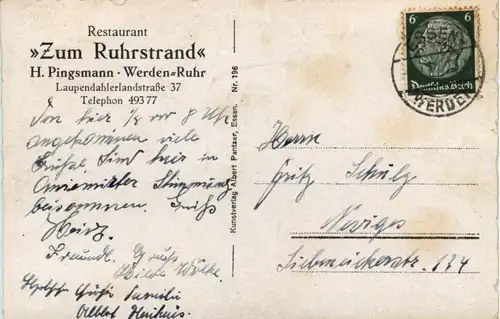 Restaurant
»Zum Ruhrstrand«
H. Pingsmann · Werden=Ruhr
Laupendahlerlandstraße 37
Telephon 49377
Von hier 1/2 vor 8 Uhr
angekommen viele
Grüße sind hier in
Stimmung
beisammen. Gruß
Heinz.
Freundl. Gruß
Familie
Albert
Kunstverlag Albert Partzer, Essen. Nr. 196
6 6
Deutsches Reich
ESSEN
WERDEN
Herrn
Fritz Schulz
Neviges
Siebeneickerstr. 174